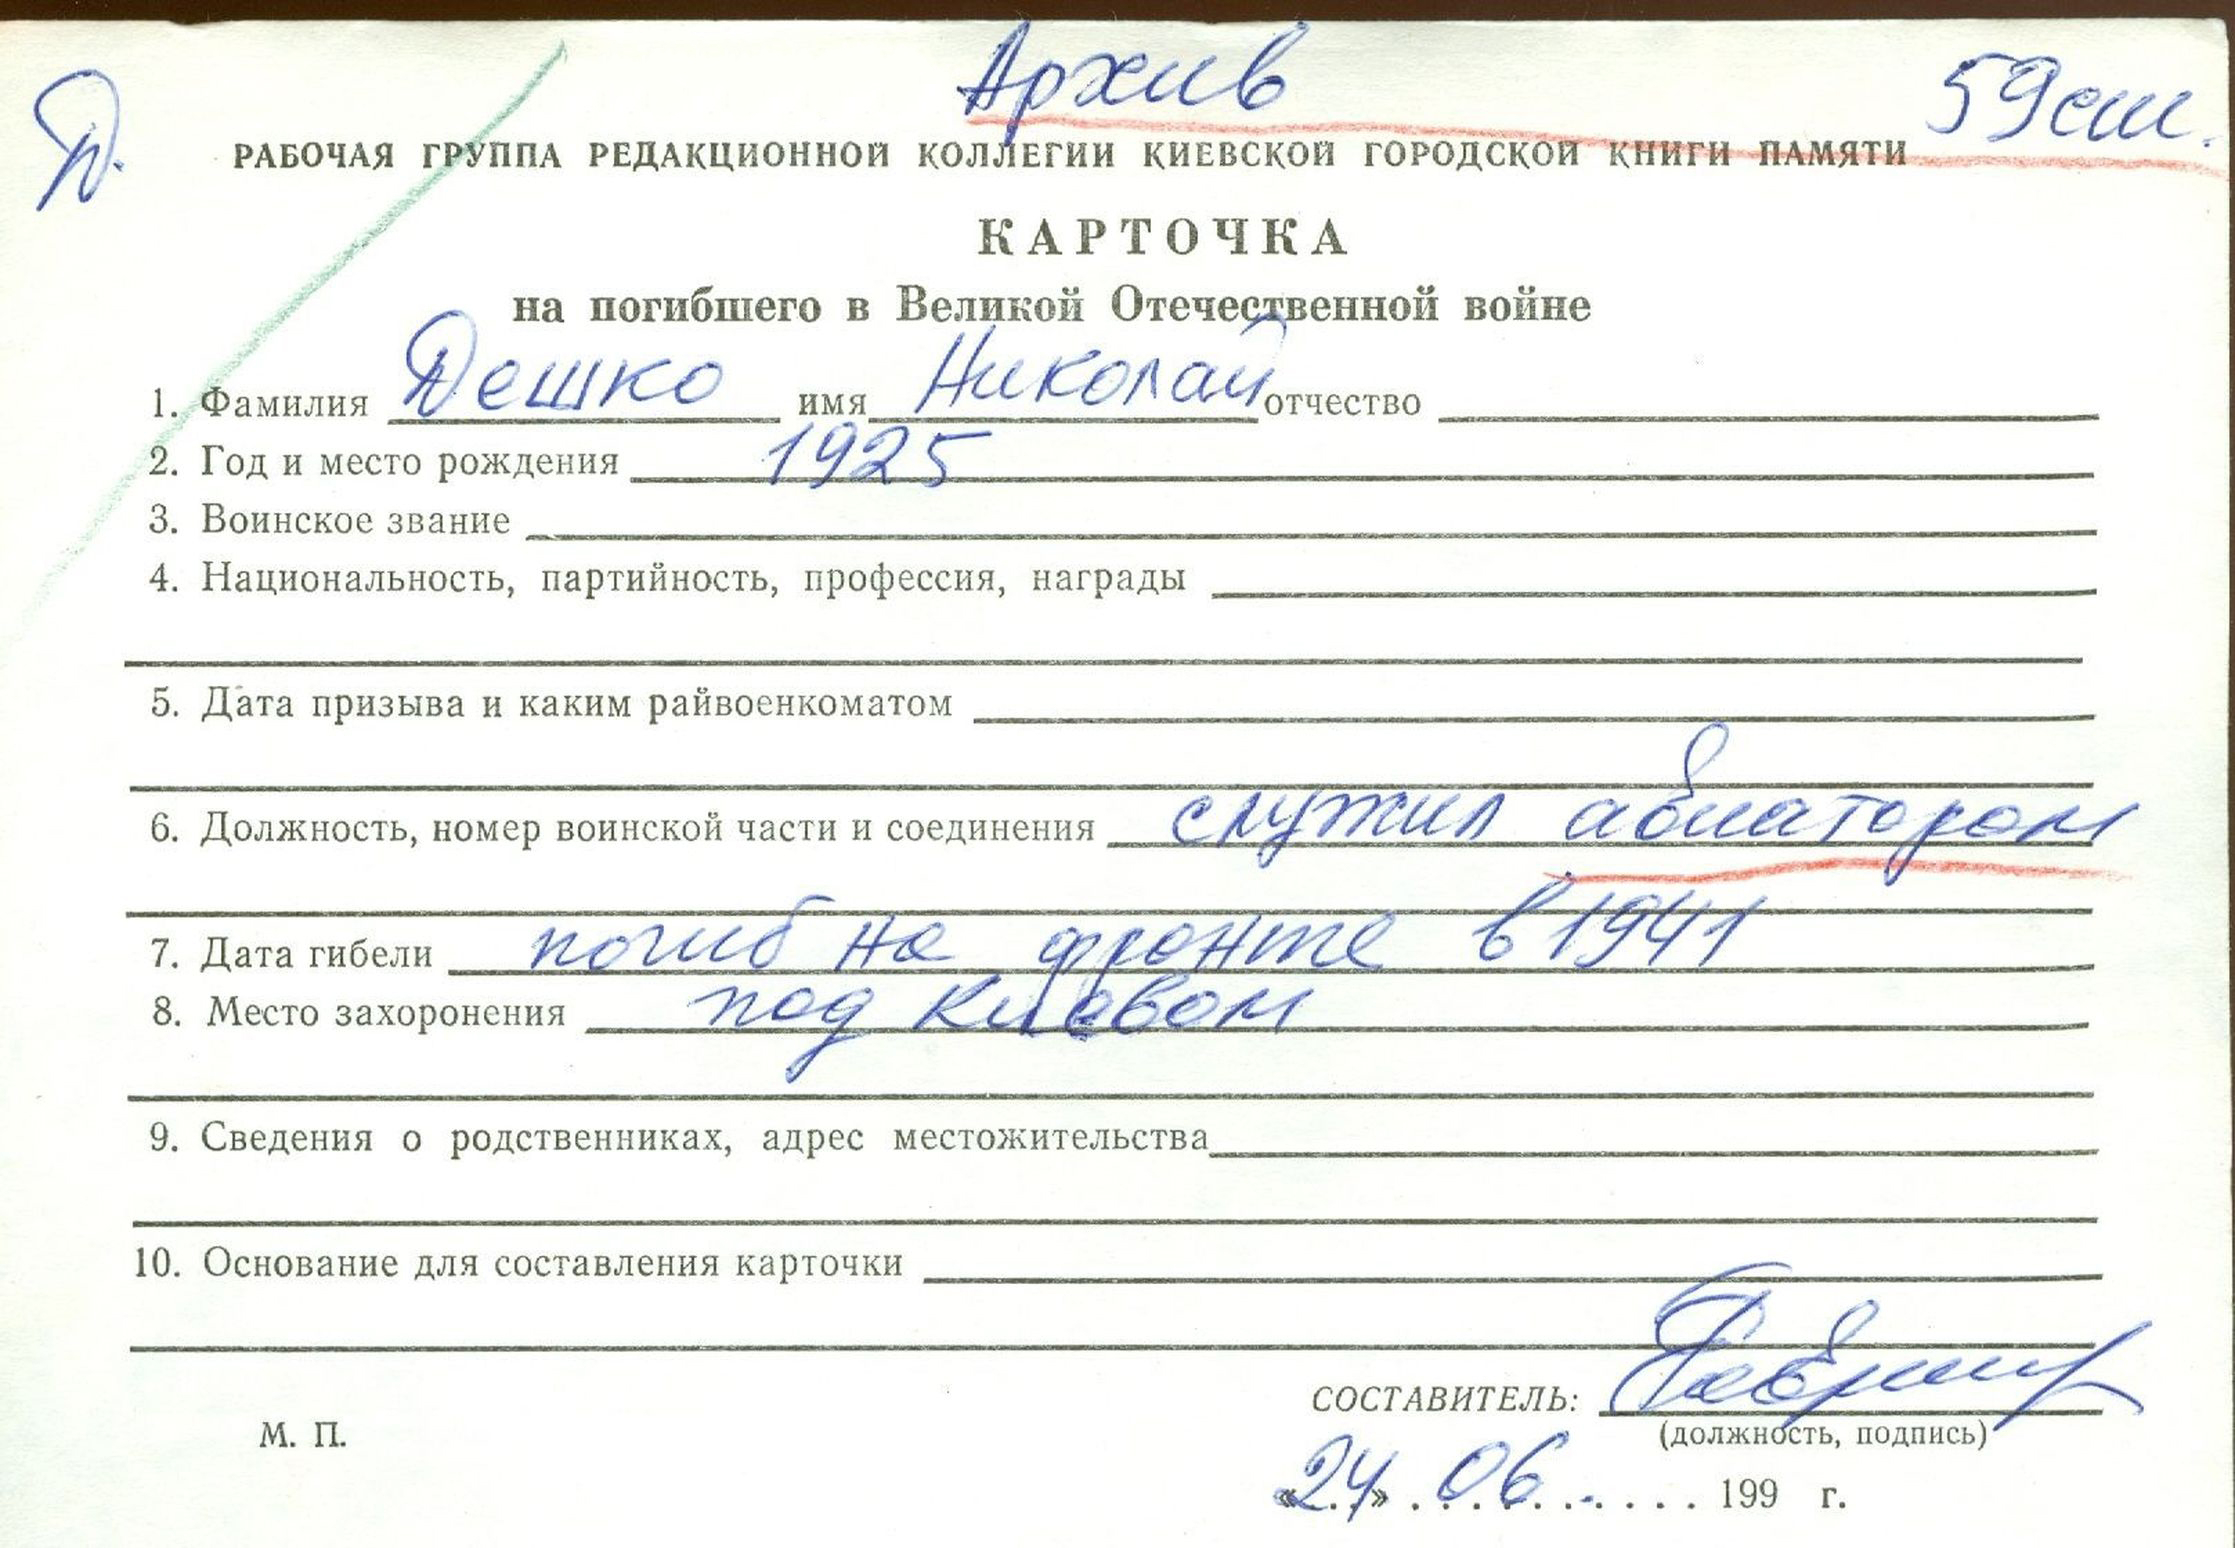 Архив
59 сш.
Д.
РАБОЧАЯ ГРУППА РЕДАКЦИОННОЙ КОЛЛЕГИИ КИЕВСКОЙ ГОРОДСКОЙ КНИГИ ПАМЯТИ
КАРТОЧКА
на погибшего в Великой Отечественной войне
1. Фамилия Дешко имя Николай отчество
2. Год и место рождения 1925
3. Воинское звание
4. Национальность, партийность, профессия, награды
5. Дата призыва и каким райвоенкоматом
6. Должность, номер воинской части и соединения служил авиатором
7. Дата гибели погиб на фронте в 1941
8. Место захоронения под Киевом
9. Сведения о родственниках, адрес местожительства
10. Основание для составления карточки
СОСТАВИТЕЛЬ:
М. П.
(должность, подпись)
«24» 06. 199 г.